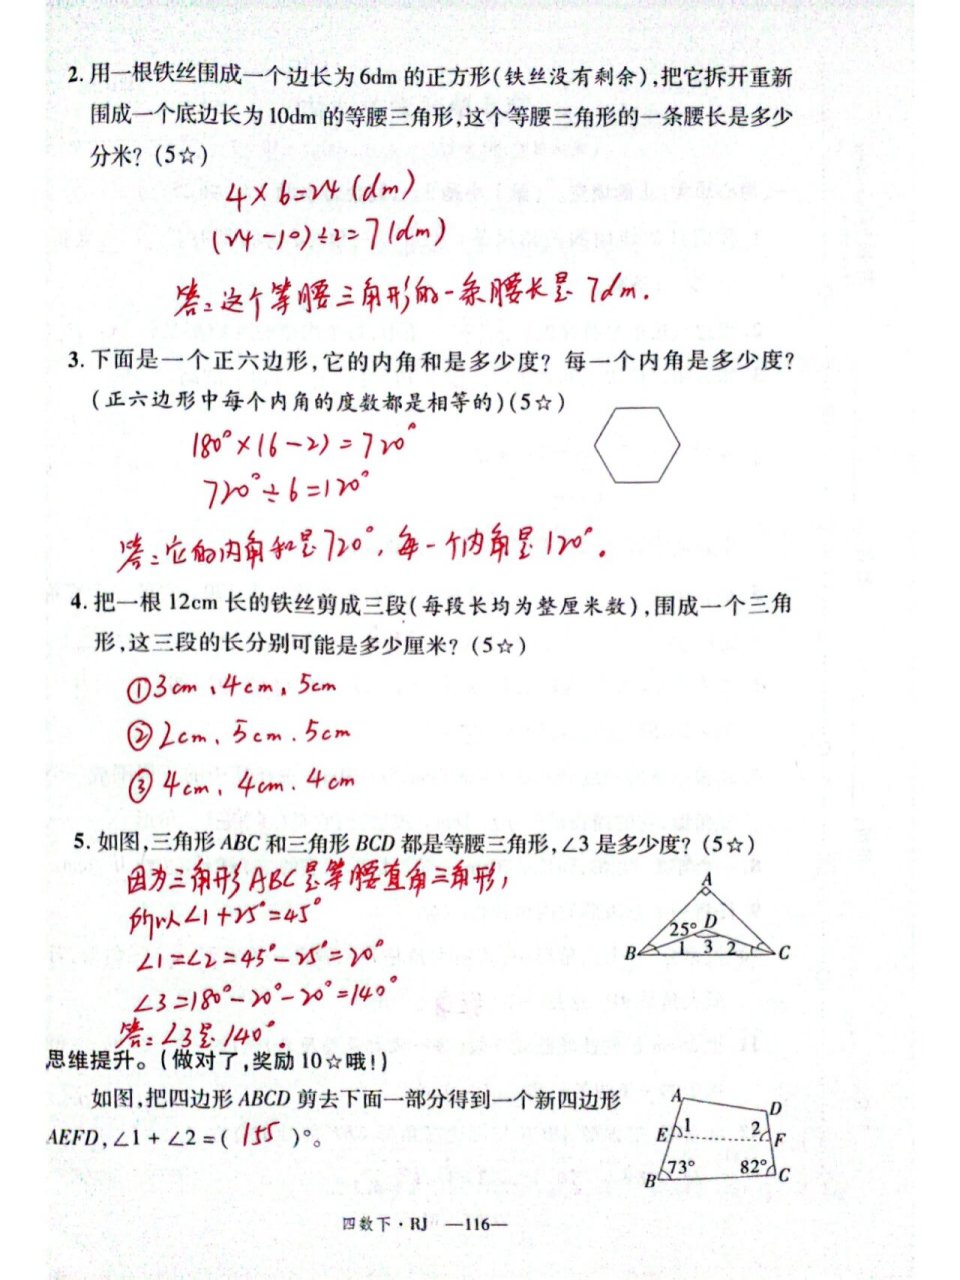 2. 用一根铁丝围成一个边长为6dm的正方形(铁丝没有剩余),把它拆开重新
围成一个底边长为10dm的等腰三角形,这个等腰三角形的一条腰长是多少
分米? (5☆)
4×6=24(dm)
(24-10)÷2=7(dm)
答:这个等腰三角形的一条腰长是7dm.
3. 下面是一个正六边形,它的内角和是多少度? 每一个内角是多少度?
(正六边形中每个内角的度数都是相等的)(5☆)
180°×(6-2)=720°
720°÷6=120°
答:它的内角和是720°,每一个内角是120°。
4. 把一根12cm长的铁丝剪成三段(每段长均为整厘米数),围成一个三角
形,这三段的长分别可能是多少厘米? (5☆)
①3cm、4cm、5cm
②2cm、5cm、5cm
③4cm、4cm、4cm
5. 如图,三角形ABC和三角形BCD都是等腰三角形,∠3是多少度? (5☆)
因为三角形ABC是等腰直角三角形,
所以∠1+25°=45°
∠1=∠2=45°-25°=20°
∠3=180°-20°-20°=140°
答:∠3是140°。
A
25° D
B 1 3 2 C
思维提升。(做对了,奖励10☆哦!)
如图,把四边形ABCD剪去下面一部分得到一个新四边形
AEFD,∠1+∠2=( 155 )°。
A D
E 1 2 F
B 73° 82° C
四数下·RJ —116—